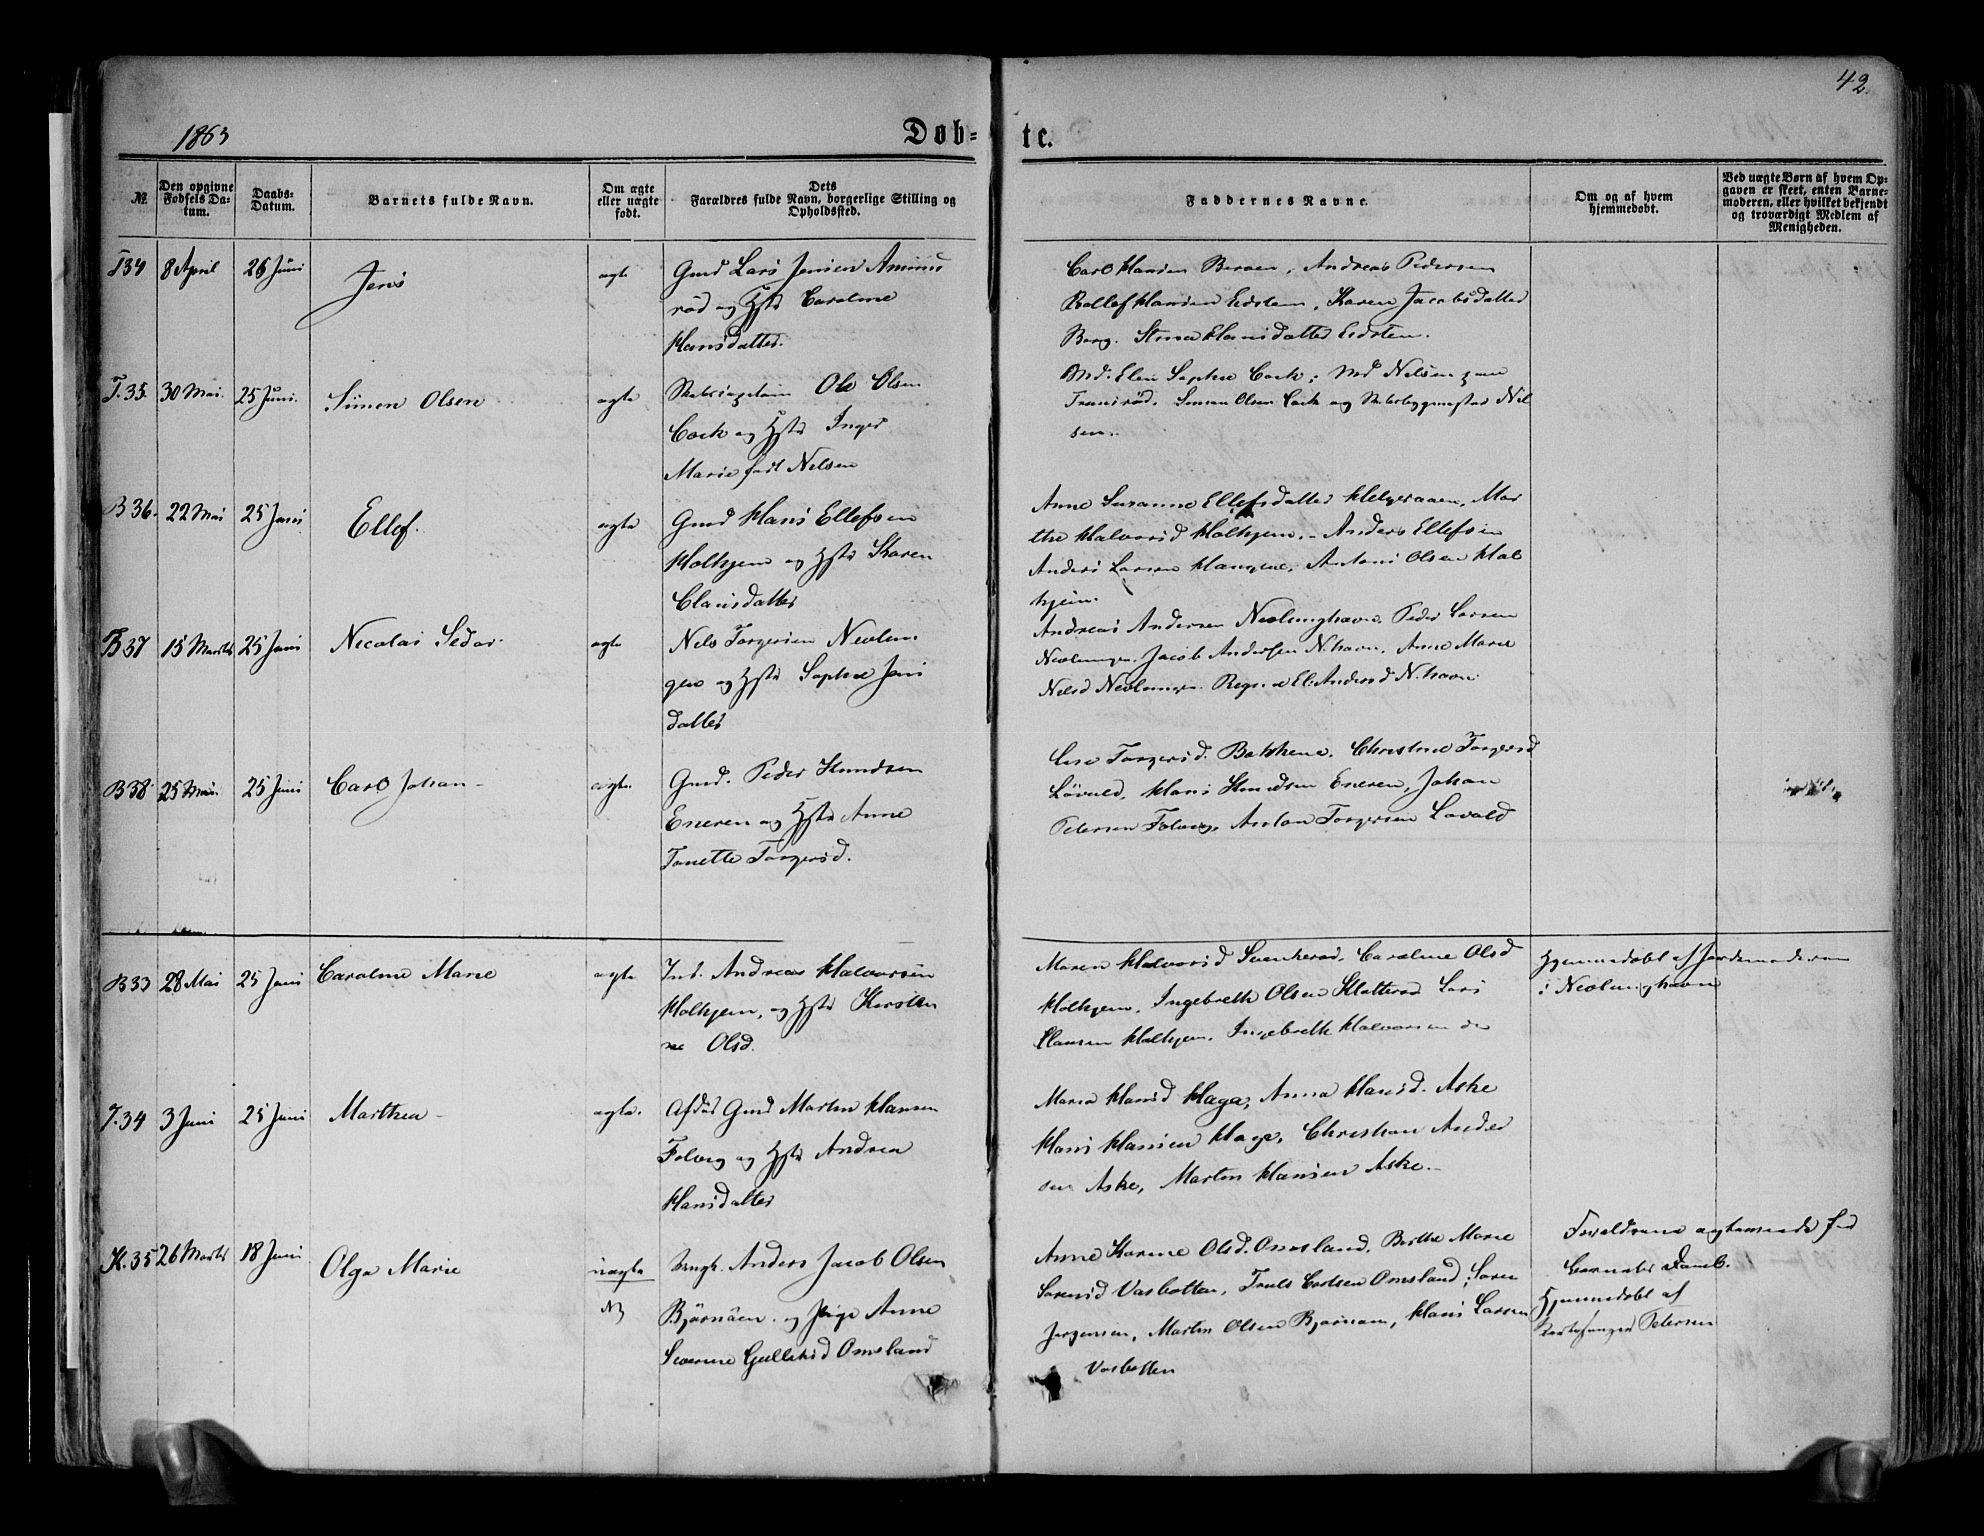 42
1863
Døb-
te.
№
Den opgivne
Fødsels Da-
tum.
Daabs-
Datum.
Barnets fulde Navn.
Om ægte
eller uægte
født.
Dets
Forældres fulde Navn, borgerlige Stilling og
Opholdssted.
Faddernes Navne.
Om og af hvem
hjemmedøbt.
Ved uægte Børn af hvem Op-
gaven er skeet, enten Barne-
moderen, eller hvilket bekjendt
og troværdigt Medlem af
Menigheden.
T34 8 April 26 Juni Jens ægte Gmd Lars Jensen Aminis
rød og Hstr Caroline
Hansdatter.
Carl Hansen Bergen, Andreas Pedersen
Rollef Hansen Eidsten, Karen Jacobsdatter
Berg. Stina Hansdatter Eidsten.
T.35. 30 Mai. 25 Juni. Simen Olsen ægte Skibscapitain Ole Olsen
Cock og Hstr Inger
Marie født Nelsen
Md. Elen Sophie Cock; Md Nelsen
Simen Olsen Cock og Skibsbygmester Nil
sen.
B36. 22 Mai 25 Juni Ellef. ægte Gmd Hans Ellefsen
Holhjem og Hstr Karen
Clausdatter
Anne Susanne Ellefsdatter Helgeraaen, Mar
the Halvorsd Holhjem. - Anders Ellefsen
Anders Larsen Haugene, Antoni Olsen Hol
hjem.
B37 15 Marts 25 Juni Nicolai Sedor. ægte Nils Torgersen Nevlun
gen og Hstr Sophie Jens
datter
Andreas Andersen Nevlunghavn, Peder Larsen
Nevlungen, Jacob Andersen N.havn, Anne Marie
Nilsd Nevlungen Regine El. Andersd N.havn
B38 25 Mai. 25 Juni Carl Johan - ægte. Gmd. Peder Knudsen
Eneren og Hstr Anne
Tonette Torgersd.
Lise Torgersd. Bakkene, Christine Torgersd
Løvald, Hans Knudsen Eneren, Johan
Petersen Folvig, Anton Torgersen Lovald
B33 28 Mai 25 Juni Caroline Marie ægte Ind. Andreas Halvorsen
Holhjem, og Hstr Kirstin
ne Olsd.
Maren Halvorsd Svenkerød, Caroline Olsd
Holhjem, Ingebreth Olsen Klatterød Lars
Hansen Holhjem, Ingebreth Halvorsen do
Hjemmedøbt af Jordemoderen
i Nevlunghavn
T.34 3 Juni 25 Juni Marthea - ægte. Afdøde Gmd Martin Hansen
Folvig og Hstr Andrea
Hansdatter
Maria Hansd Haga, Anna Hansd. Aske
Hans Hansen Hage, Christian Ander
sen Aske, Martin Hansen Aske. -
K.35 26 Marts 18 Juni Olga Marie uægte Ungk. Anders Jacob Olsen
NB Bjørnøen. og Pige Anne
Severine Gullikkd Omsland
Anne Karine Olsd. Omsland, Berthe Marie
Sørensd Vasbotten, Truls Carlsen Omsland; Søren
Jørgensen, Martin Olsen Bjørnøen, Hans Larsen
Vasbotten
Forældrene ægteviede før
Barnets Daab.
Hjemmedøbt af
Petersen